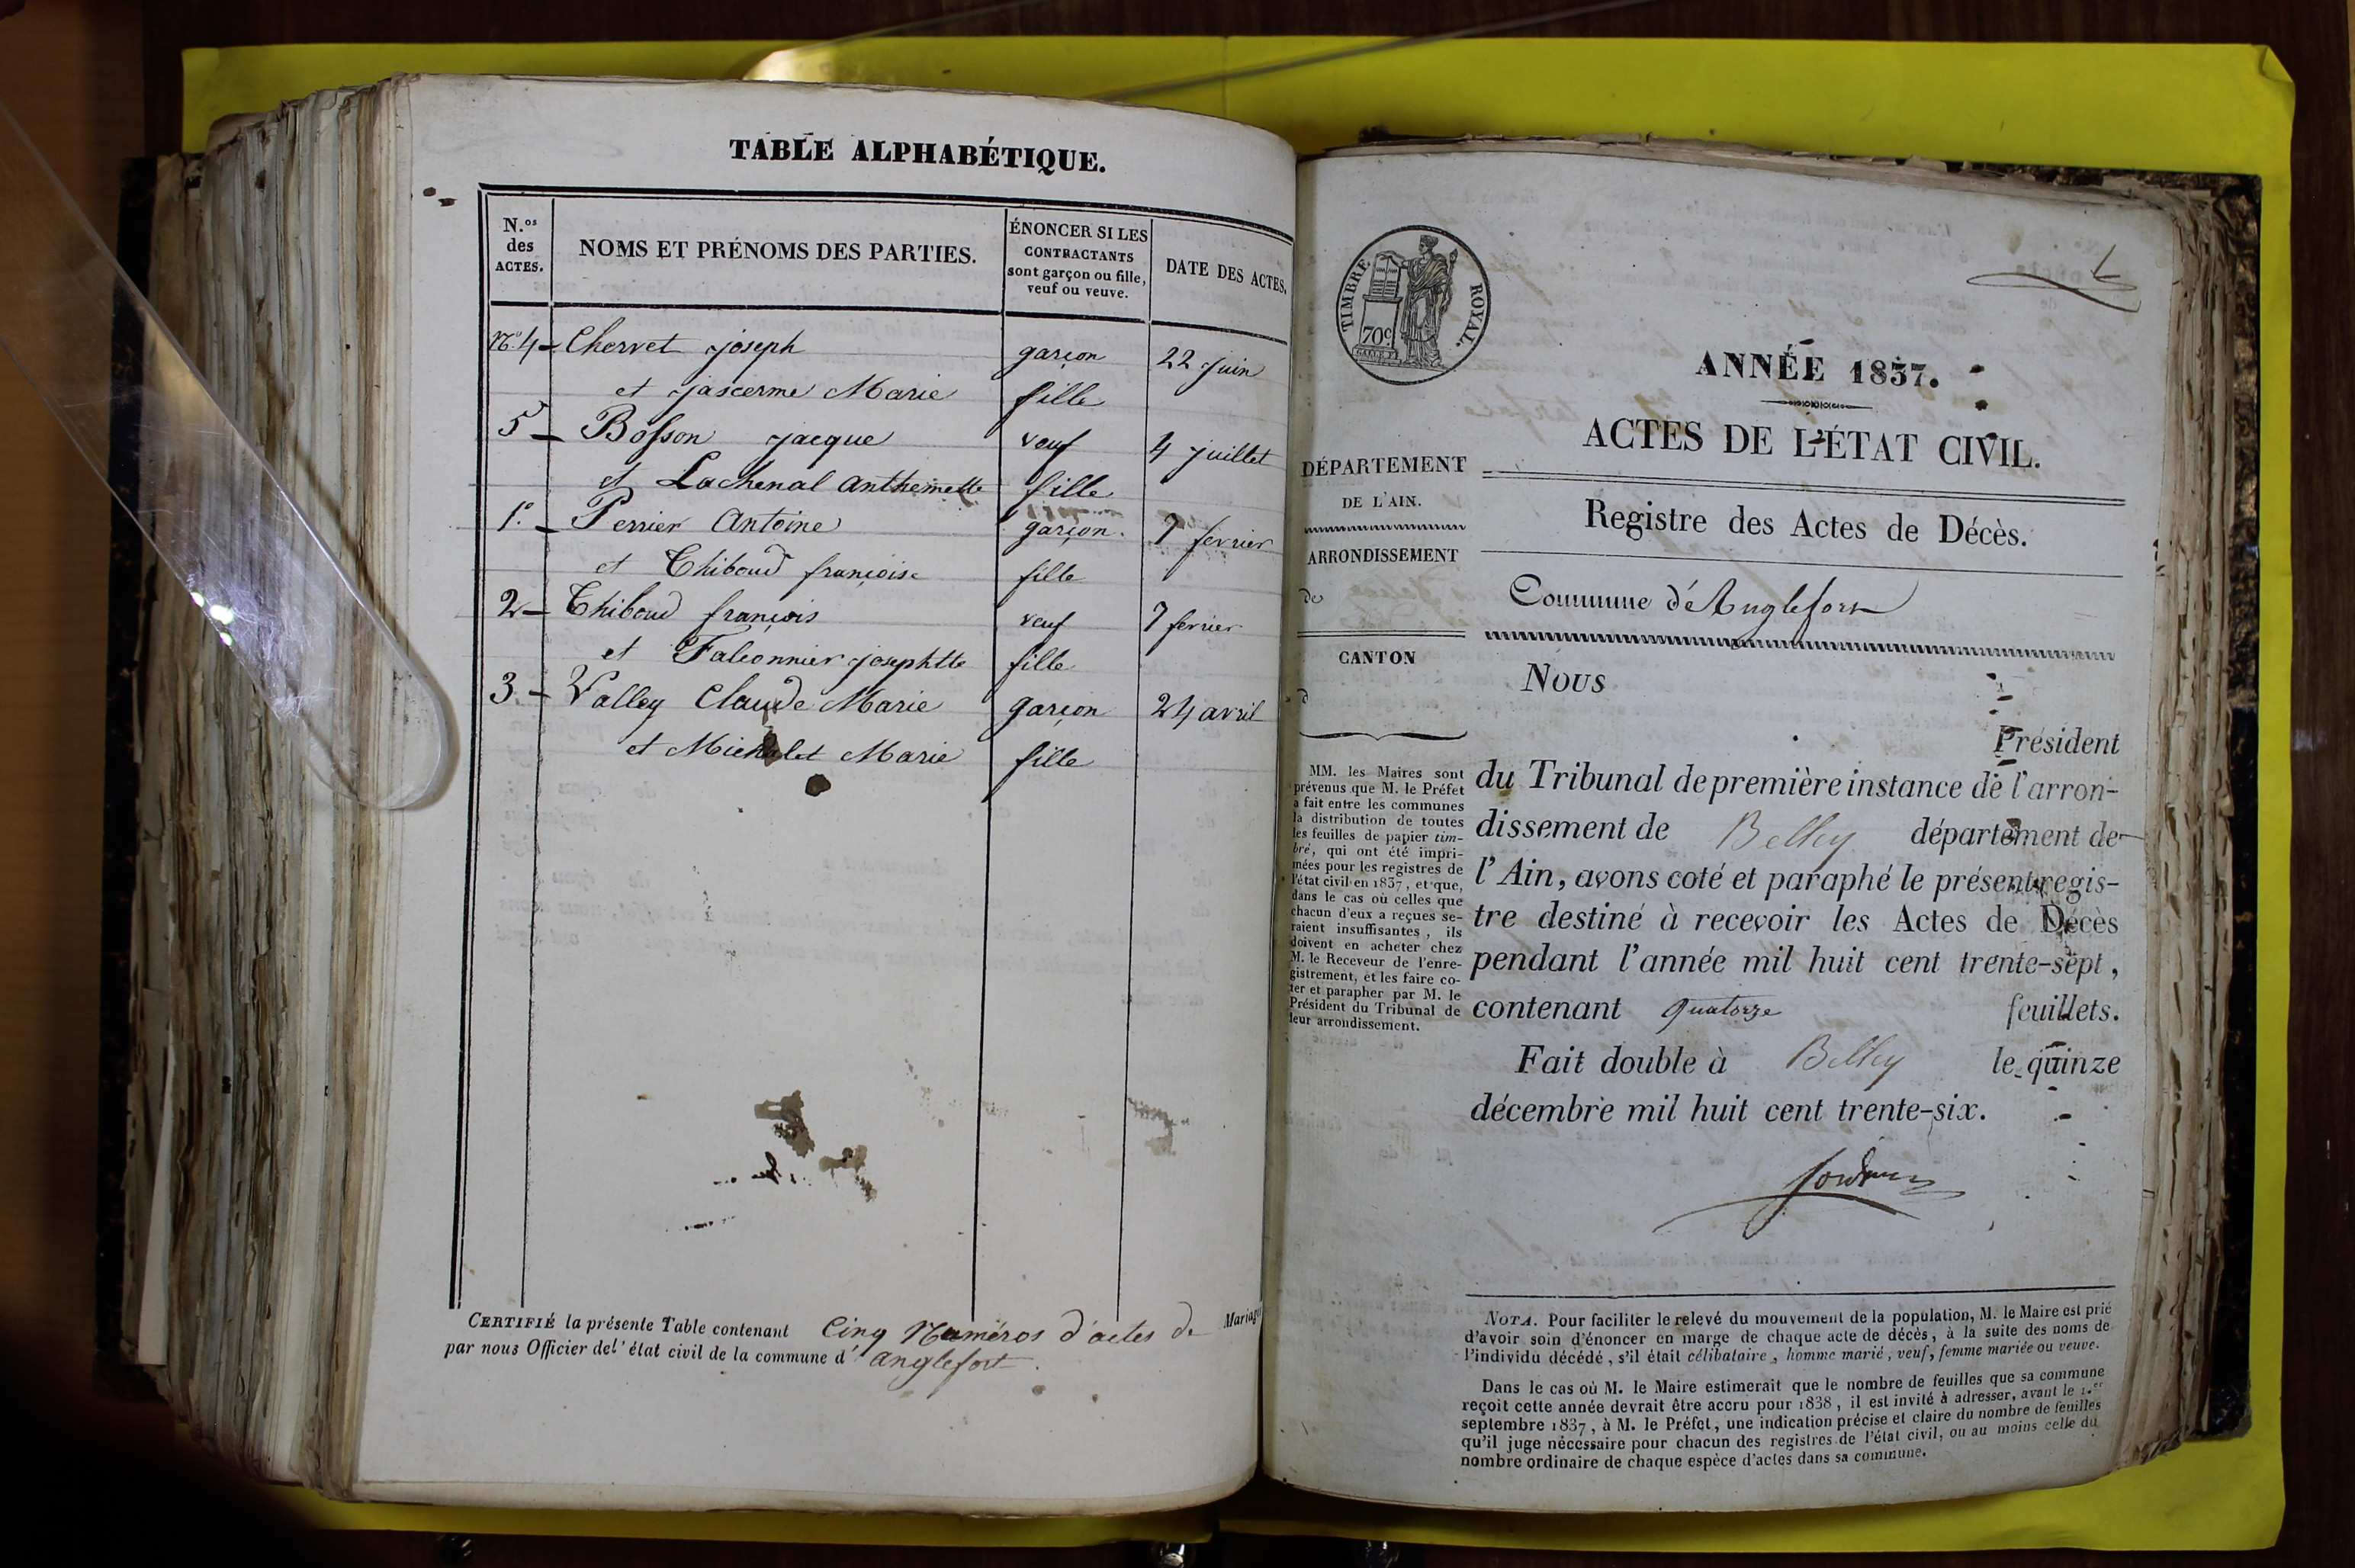 TABLE ALPHABÉTIQUE.
N.os des ACTES.
NOMS ET PRÉNOMS DES PARTIES.
ÉNONCER SI LES CONTRACTANTS sont garçon ou fille, veuf ou veuve.
DATE DES ACTES.
N.º 4 - Chervet joseph garçon 22 juin
et jascerme Marie fille
5 - Bosson jacque veuf 4 juillet
et Lachenal anthemette fille
1.º - Perrier Antoine garçon. 7 fevrier
et Thiboud françoise fille
2 - Thiboud françois veuf 7 fevrier
et Falconnier josephtte fille
3. - Valley Claude Marie garçon 24 avril
et Michelet Marie fille
CERTIFIÉ la présente Table contenant Cinq Numéros d'actes de Mariages
par nous Officier del' état civil de la commune d' anglefort.
TIMBRE ROYAL.
70c
ANNÉE 1837.
ACTES DE L'ÉTAT CIVIL.
Registre des Actes de Décès.
Commune d'Anglefort
DÉPARTEMENT
DE L'AIN.
ARRONDISSEMENT
de
CANTON
d
MM. les Maires sont
prévenus que M. le Préfet
a fait entre les communes
la distribution de toutes
les feuilles de papier tim-
bré, qui ont été impri-
mées pour les registres de
l'état civil en 1837, et que,
dans le cas où celles que
chacun d'eux a reçues se-
raient insuffisantes, ils
doivent en acheter chez
M. le Receveur de l'enre-
gistrement, et les faire co-
ter et parapher par M. le
Président du Tribunal de
leur arrondissement.
Nous
Président
du Tribunal de première instance de l'arron-
dissement de Belley département de
l'Ain, avons coté et paraphé le présent regis-
tre destiné à recevoir les Actes de Décès
pendant l'année mil huit cent trente-sept,
contenant quatorze feuillets.
Fait double à Belley le quinze
décembre mil huit cent trente-six.
NOTA. Pour faciliter le relevé du mouvement de la population, M. le Maire est prié
d'avoir soin d'énoncer en marge de chaque acte de décès, à la suite des noms de
l'individu décédé, s'il était célibataire, homme marié, veuf, femme mariée ou veuve.
Dans le cas où M. le Maire estimerait que le nombre de feuilles que sa commune
reçoit cette année devrait être accru pour 1838, il est invité à adresser, avant le 1.er
septembre 1837, à M. le Préfet, une indication précise et claire du nombre de feuilles
qu'il juge nécessaire pour chacun des registres de l'état civil, ou au moins celle du
nombre ordinaire de chaque espèce d'actes dans sa commune.